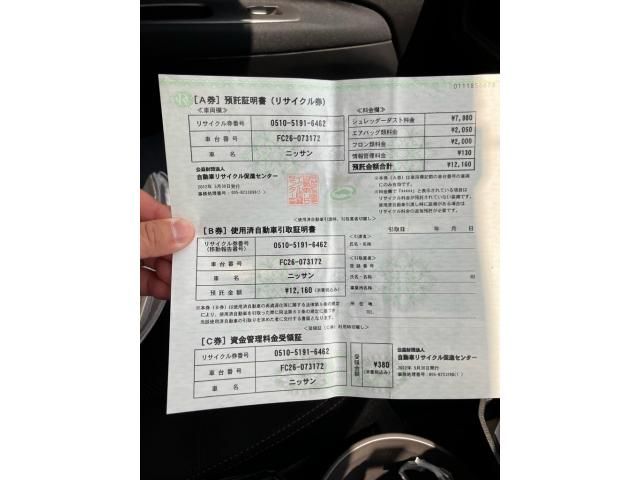 [A券] 預託証明書 (リサイクル券)
≪車両欄≫
リサイクル券番号 0510-5191-6462
車台番号 FC26-073172
車名 ニッサン
公益財団法人
自動車リサイクル促進センター
2012年 5月30日発行
≪料金欄≫
シュレッダーダスト料金 ¥7,980
エアバッグ類料金 ¥2,050
フロン類料金 ¥2,000
情報管理料金 ¥130
預託金額合計 ¥12,160
[B券] 使用済自動車引取証明書
リサイクル券番号 (移動報告番号) 0510-5191-6462
車台番号 FC26-073172
車名 ニッサン
預託金額 ¥12,160 (消費税込み)
引取日 年 月 日
≪引渡者≫
氏名・名称
≪引取業者≫
登録番号
氏名・名称 印
事業所名称
所在地
TEL
[C券] 資金管理料金受領証
リサイクル券番号 0510-5191-6462
車台番号 FC26-073172
車名 ニッサン
受領金額 ¥380 (消費税込み)
公益財団法人
自動車リサイクル促進センター
2012年 5月30日発行